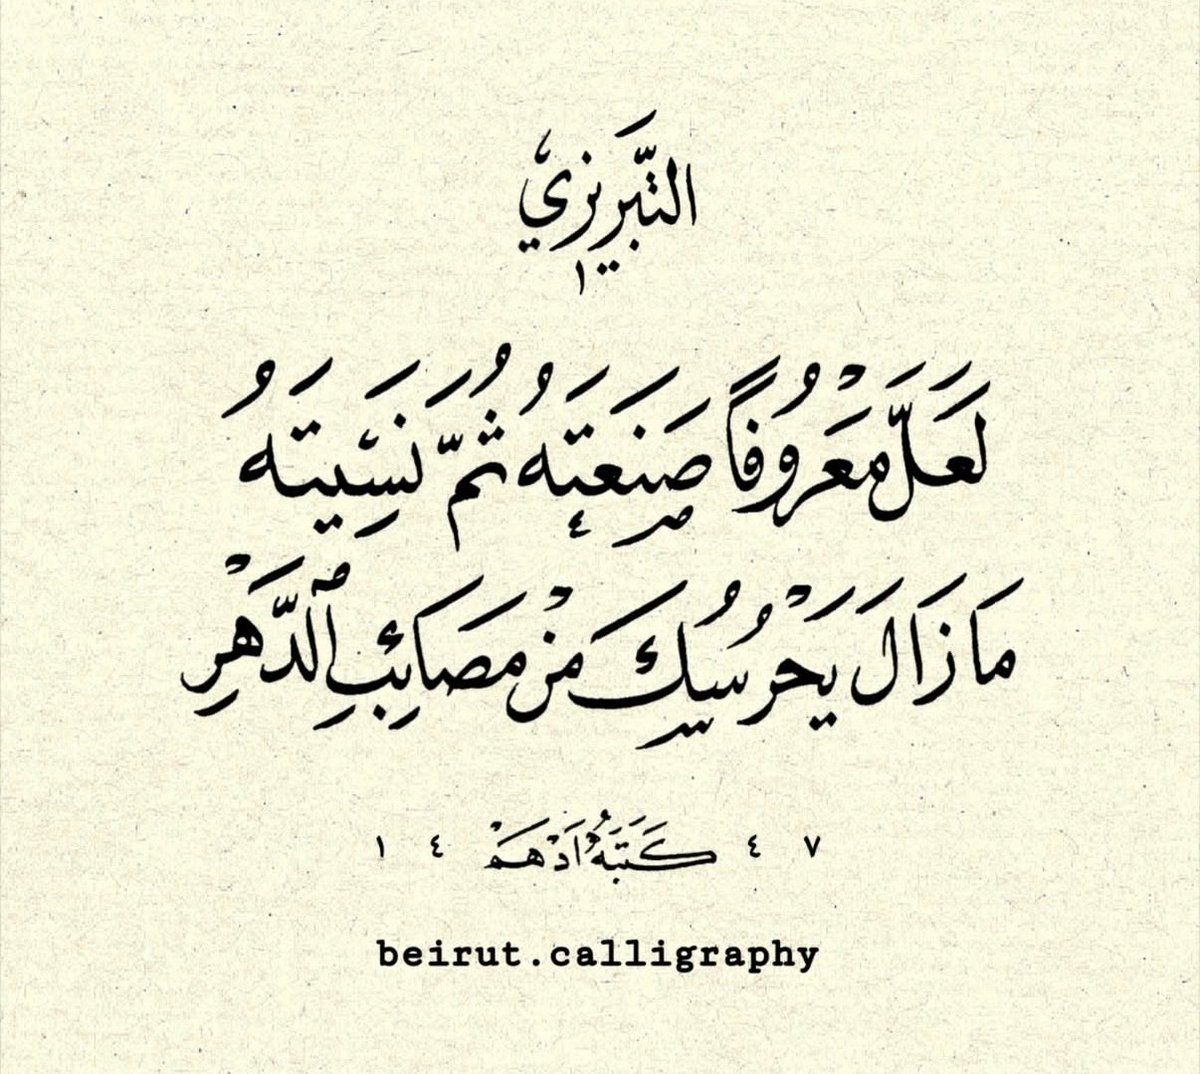 التَّبريزي
لَعَلَّ مَعْرُوفًا صَنَعتَهُ ثُمَّ نَسِيتَهُ
مَا زَالَ يَحْرُسُكَ مَنْ مَصَائِبِ ٱلدَّهْرِ
١ ٤ كَتَبَهُ أَدْهَمْ ٤ ٧
beirut.calligraphy